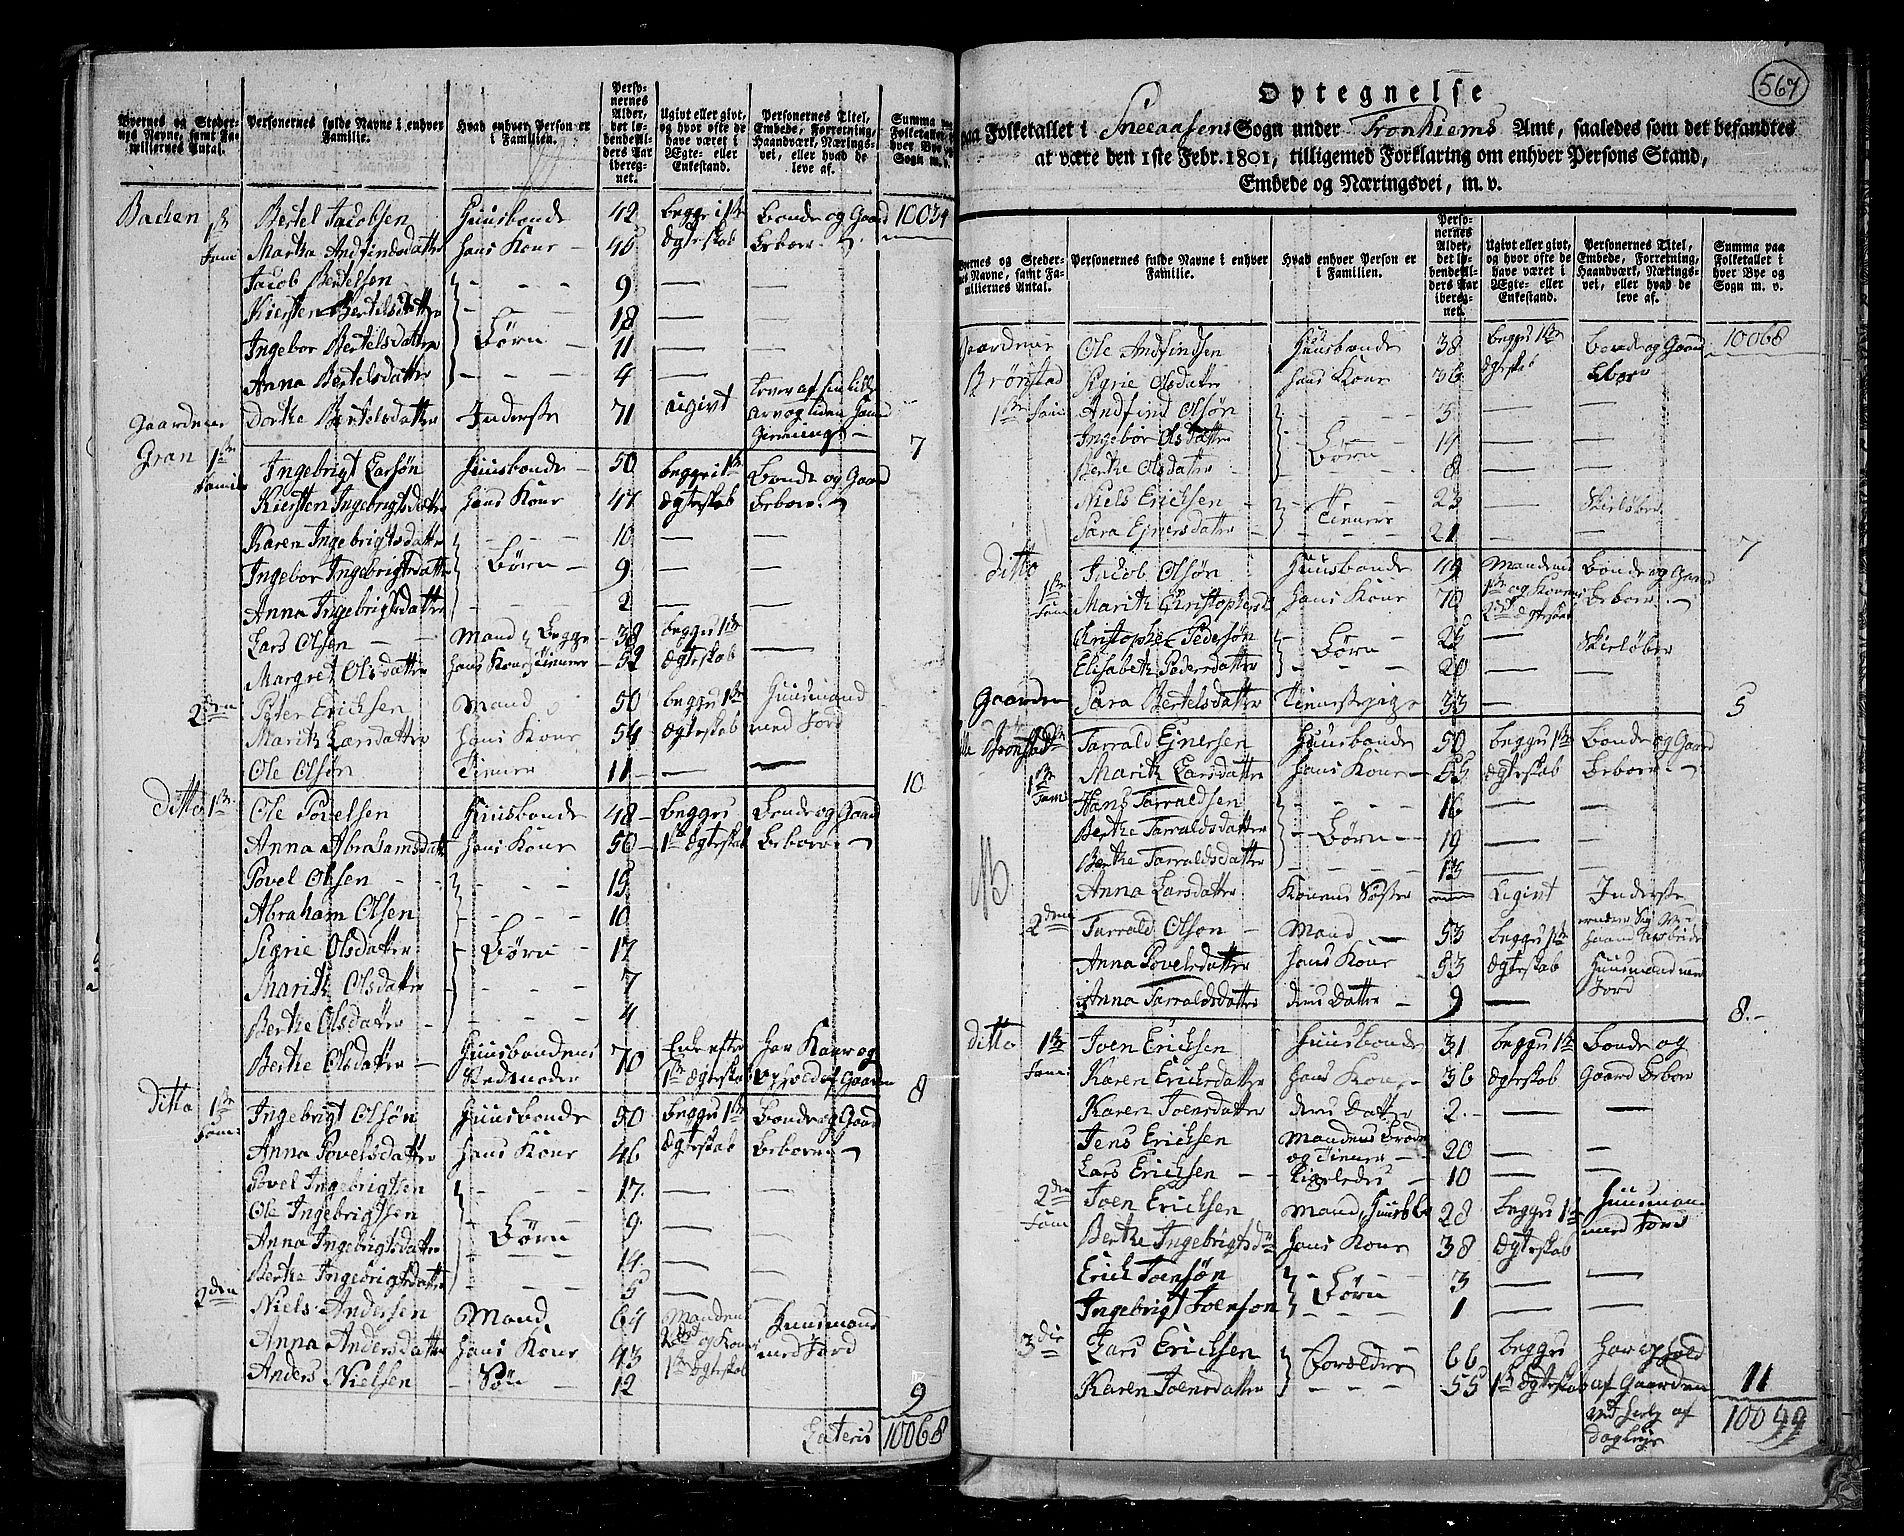 Byernes og Steder-
nes Navne, samt Fa-
miliernes Antal.
Personernes fulde Navne i enhver
Familie.
Hvad enhver Person er
i Familien.
Perso-
nernes
Alder,
det lø-
bendeAl-
ders Aar
iberegnet.
Ugivt eller givt,
og hvor ofte de
have været i
Ægte- eller
Enkestand.
Personernes Titel,
Embede, Forretning,
Haandværk, Nærings-
vei, eller hvad de
leve af.
Summa paa
Folketallet i
hver Bye og
Sogn m. v.
Baden 1ste Bertel Jacobsen Huusbonde 42 begge i 1ste Bonde og Gaard 10034
Fam: Martha Andfindsdatter hans Kone 46 Ægteskab Beboer
Jacob Bertelsen 9 —
Kiersten Bertelsdatter 18 —
Ingebor Bertelsdatter Børn 11 —
Anna Bertelsdatter 4 —
Gaardene Dorthe Bertelsdatter Inderste 71 ugivt lever af sin lille
Arv og liden Haand
Gierning 7
Gran 1ste Ingebrigt Larsøn Huusbonde 50 begge i 1ste Bonde og Gaard
Familie Kiersten Ingebrigtsdatter hans Kone 47 Ægteskab Beboer
Karen Ingebrigtsdatter 10 — —
Ingebor Ingebrigtsdatter Børn 9 — —
Anna Ingebrigtsdatter 2 — —
Lars Olsen Mand Begge 38 begge 1ste
Margret Olsdatter hans Kone Tienere 52 Ægteskab
2den Peter Ericksen Mand 50 begge 1ste Huusmand
Marith Larsdatter hans Kone 54 Ægteskab med Jord
Ole Olsøn Tiener 11 — — 10
Ditto 1ste Ole Povelsen Huusbonde 48 begge Bonde og Gaard
Anna Abrahamsdatt hans Kone 50 1ste Ægteskab Beboer
Povel Olsen 15
Abraham Olsen 10
Sigrie Olsdatter Børn 17
Marith Olsdatter 7
Berthe Olsdatter 4
Berthe Olsdatter Huusbondens 70 Enke efter har Kaar og
1ste Ægteskab Ophold af Gaarden 8
Ditto 1ste Ingebrigt Olsøn Huusbonde 50 begge 1ste Bonde og Gaard
Fam: Anna Povelsdatter hans Kone 46 Ægteskab Beboer
Povel Ingebrigtsen 17 — —
Ole Ingebrigtsen 9 — —
Anna Ingebrigtsdatter Børn 14 — —
Berthe Ingebrigtsdatter 5 — —
2den Niels Andersen Mand 64 Manden Huusmand
Anna Andersdatter hans Kone 43 2det og Konen med Jord
Anders Nielsen Søn 12 1ste Ægteskab 9
Lateris 10068
567
Optegnelse
paa Folketallet i Sneeaasens Sogn under Tronhiems Amt, saaledes som det befandtes
at være den 1ste Febr. 1801, tilligemed Forklaring om enhver Persons Stand,
Embede og Næringsvei, m. v.
Byernes og Steder-
nes Navne, samt Fa-
miliernes Antal.
Personernes fulde Navne i enhver
Familie.
Hvad enhver Person er
i Familien.
Perso-
nernes
Alder,
det lø-
bendeAl-
ders Aar
ibereg-
net.
Ugivt eller givt,
og hvor ofte de
have været i
Ægte- eller
Enkestand.
Personernes Titel,
Embede, Forretning,
Haandværk, Nærings-
vei, eller hvad de
leve af.
Summa paa
Folketallet i
hver Bye og
Sogn m. v.
Gaardene Ole Andfindsen Huusbonde 38 begge 1ste Bonde og Gaard 10068
Brønstad Sigrie Olsdatter hans Kone 36 Ægteskab Beboer
1ste Fam Andfind Olsøn 5 — —
Ingebor Olsdatter Børn 14 — —
Berthe Olsdatter 8 — —
Niels Ericksen 23 — Skieløber
Sara Ejnersdatter Tienere 21 — — 7
Ditto Jacob Olsøn Huusbonde 49 Mandens Bonde og Gaard
1ste Fam Marith Christophersd hans Kone 70 1ste og Konens Beboer
2det Ægteskab
Christopher Pedersøn Børn 26 — Skieløber
Elisabeth Pedersdatter 20 —
Gaarden Sara Bertelsdatter Tienestepige 33 — — 5
Tarrald Ejnersen Huusbonde 50 begge 1ste Bonde og Gaard
1ste Fam Marith Larsdatter hans Kone 55 Ægteskab Beboer
Hans Tarraldsen 16 — —
Berthe Tarraldsdatter Børn 19 — —
Berthe Tarraldsdatter 13 — —
NB. Anna Larsdatter Konens Søster Ugivt Inderste
2den Tarrald Olsen Mand 53 begge 1ste
Anna Povelsdatter hans Kone 53 Ægteskab Huusmand med
Jord
Anna Tarraldsdatter deres Datter 9 — 8
Ditto 1ste Joen Ericksen Huusbonde 31 begge 1ste Bonde og
Fam: Karen Ericksdatter hans Kone 36 Ægteskab Gaard Beboer
Karen Joensdatter deres Datter 2 — —
Jens Ericksen Mandens Broder 20 — —
og Tiener
Lars Ericksen ligeledes 10 — —
2den Joen Ericksen Mand 28 begge 1ste Huusmand
Fam Berthe Ingebrigtsd hans Kone 38 Ægteskab med Jord
Erich Joensøn Børn 3 — —
Ingebrigt Joenson 1 — —
3die Lars Ericksen Forældre 66 begge har ophold
Karen Joensdatter 55 1ste Ægteskab af Gaarden 11
10099